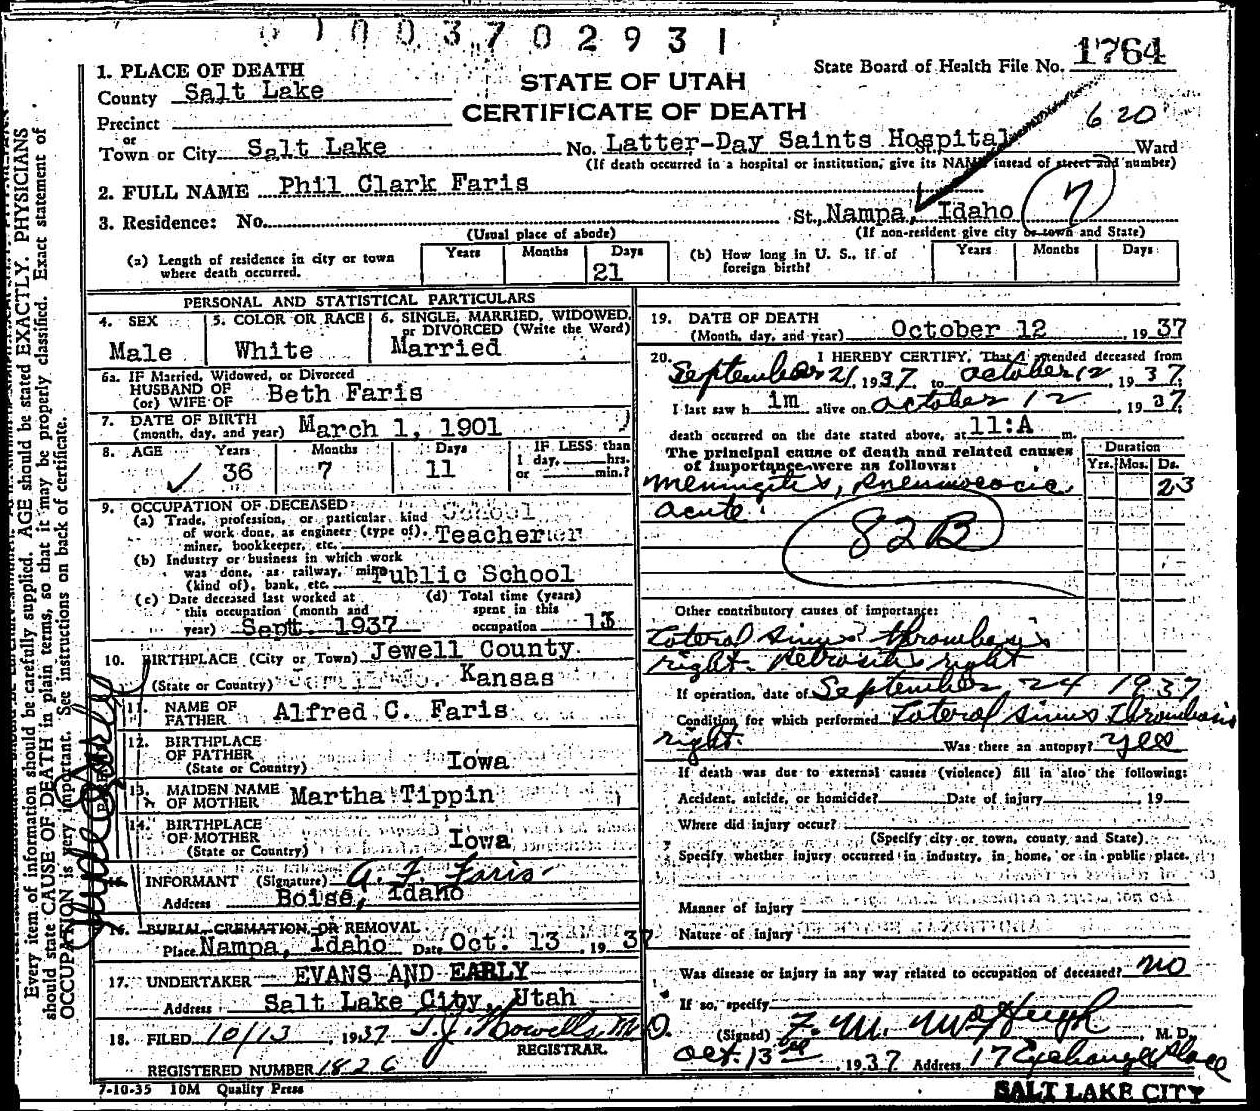 0 1 0 0 3 7 0 2 9 3 1
State Board of Health File No. 1764
620
1. PLACE OF DEATH
County Salt Lake
STATE OF UTAH
CERTIFICATE OF DEATH
Precinct
or
Town or City Salt Lake No. Latter-Day Saints Hospital St., Ward
(If death occurred in a hospital or institution, give its NAME instead of street and number)
2. FULL NAME Phil Clark Faris
3. Residence: No. St., Nampa, Idaho 7
(Usual place of abode) (If non-resident give city or town and State)
(a) Length of residence in city or town where death occurred. Years Months Days 21
(b) How long in U. S., if of foreign birth? Years Months Days
PERSONAL AND STATISTICAL PARTICULARS
4. SEX Male
5. COLOR OR RACE White
6. SINGLE, MARRIED, WIDOWED, or DIVORCED (Write the Word) Married
6a. IF Married, Widowed, or Divorced
HUSBAND OF
(or) WIFE OF Beth Faris
7. DATE OF BIRTH
(month, day, and year) March 1, 1901
8. AGE Years 36 Months 7 Days 11
IF LESS than
1 day, hrs.
or min.?
9. OCCUPATION OF DECEASED
(a) Trade, profession, or particular kind of work done, as engineer (type of), miner, bookkeeper, etc. School Teacher
(b) Industry or business in which work was done, as railway, mine (kind of), bank, etc. Public School
(c) Date deceased last worked at this occupation (month and year) Sept. 1937
(d) Total time (years) spent in this occupation 13
10. BIRTHPLACE (City or Town) Jewell County
(State or Country) Kansas
11. NAME OF FATHER Alfred C. Faris
12. BIRTHPLACE OF FATHER
(State or Country) Iowa
13. MAIDEN NAME OF MOTHER Martha Tippin
14. BIRTHPLACE OF MOTHER
(State or Country) Iowa
INFORMANT (Signature) A. F. Faris
Address Boise, Idaho
16. BURIAL, CREMATION, OR REMOVAL
Place Nampa, Idaho Date Oct. 13, 1937
17. UNDERTAKER EVANS AND EARLY
Address Salt Lake City, Utah
18. FILED 10/13, 1937 T. J. Howells, M.D.
REGISTRAR.
REGISTERED NUMBER 1826
7-10-35 10M Quality Press
19. DATE OF DEATH
(Month, day, and year) October 12, 1937
20. I HEREBY CERTIFY, That I attended deceased from
September 21, 1937, to October 12, 1937;
I last saw him alive on October 12, 1937,
death occurred on the date stated above, at 11:A m.
The principal cause of death and related causes of importance were as follows:
Duration
Yrs. Mos. Ds.
Meningitis, Pneumococcic 23
acute
82B
Other contributory causes of importance:
Lateral Sinus thrombosis
right. Petrositis right
If operation, date of September 24 1937
Condition for which performed Lateral Sinus Thrombosis
right. Was there an autopsy? yes
If death was due to external causes (violence) fill in also the following:
Accident, suicide, or homicide? Date of injury , 19
Where did injury occur?
(Specify city or town, county and State)
Specify whether injury occurred in industry, in home, or in public place.
Manner of injury
Nature of injury
Was disease or injury in any way related to occupation of deceased? no
If so, specify
(Signed) F. M. McHugh, M. D.
Oct. 13, 1937 Address 17 Exchange Place
SALT LAKE CITY
Every item of information should be carefully supplied. AGE should be stated EXACTLY. PHYSICIANS
should state CAUSE OF DEATH in plain terms, so that it may be properly classified. Exact statement of
OCCUPATION is very important. See instructions on back of certificate.